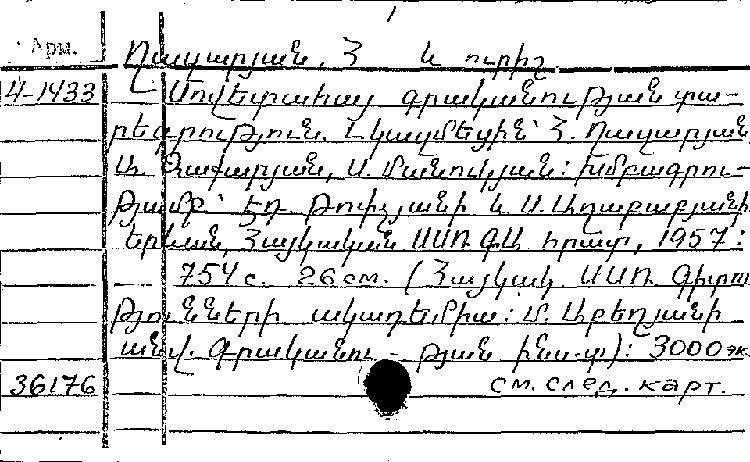 1
Арм.
Ղազարյան, Հ և ուրիշ
4-1433 Սովետահայ գրականության տա-
րեգրություն. Կազմեցին՝ Հ. Ղազարյան,
Ա. Զաքարյան, Ս. Մանուկյան: Խմբագրու-
թյամբ՝ Էդ. Թոփչյանի և Ս. Աղաբաբյանի
Երևան, Հայկական ՍՍՌ ԳԱ հրատ, 1957:
754 с. 26 см. (Հայկակ. ՍՍՌ Գիտու
թյունների ակադեմիա: Մ. Աբեղյանի
անվ. Գրականու-թյան ինս-տ): 3000 эк.
36176 см. след. карт.